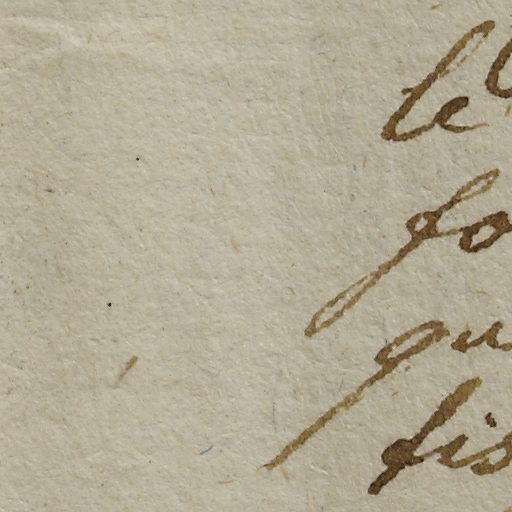 le
fo
qu
fis